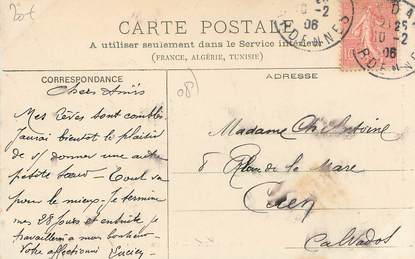 CARTE POSTALE
A utiliser seulement dans le Service intérieur
(FRANCE, ALGÉRIE, TUNISIE)
CORRESPONDANCE
ADRESSE
Chers Amis
Mes rêves sont comblés
J'aurai bientôt le plaisir
de donner une autre
petite sœur - Tout va
pour le mieux. Je termine
mes 28 jours et ensuite je
travaillerai à mon bonheur
Votre affectionné Lucien
Madame Ch Antoine
8 de la Mare
Caen
Calvados
(08)
10-2
06
ARDENNES
10-2
06